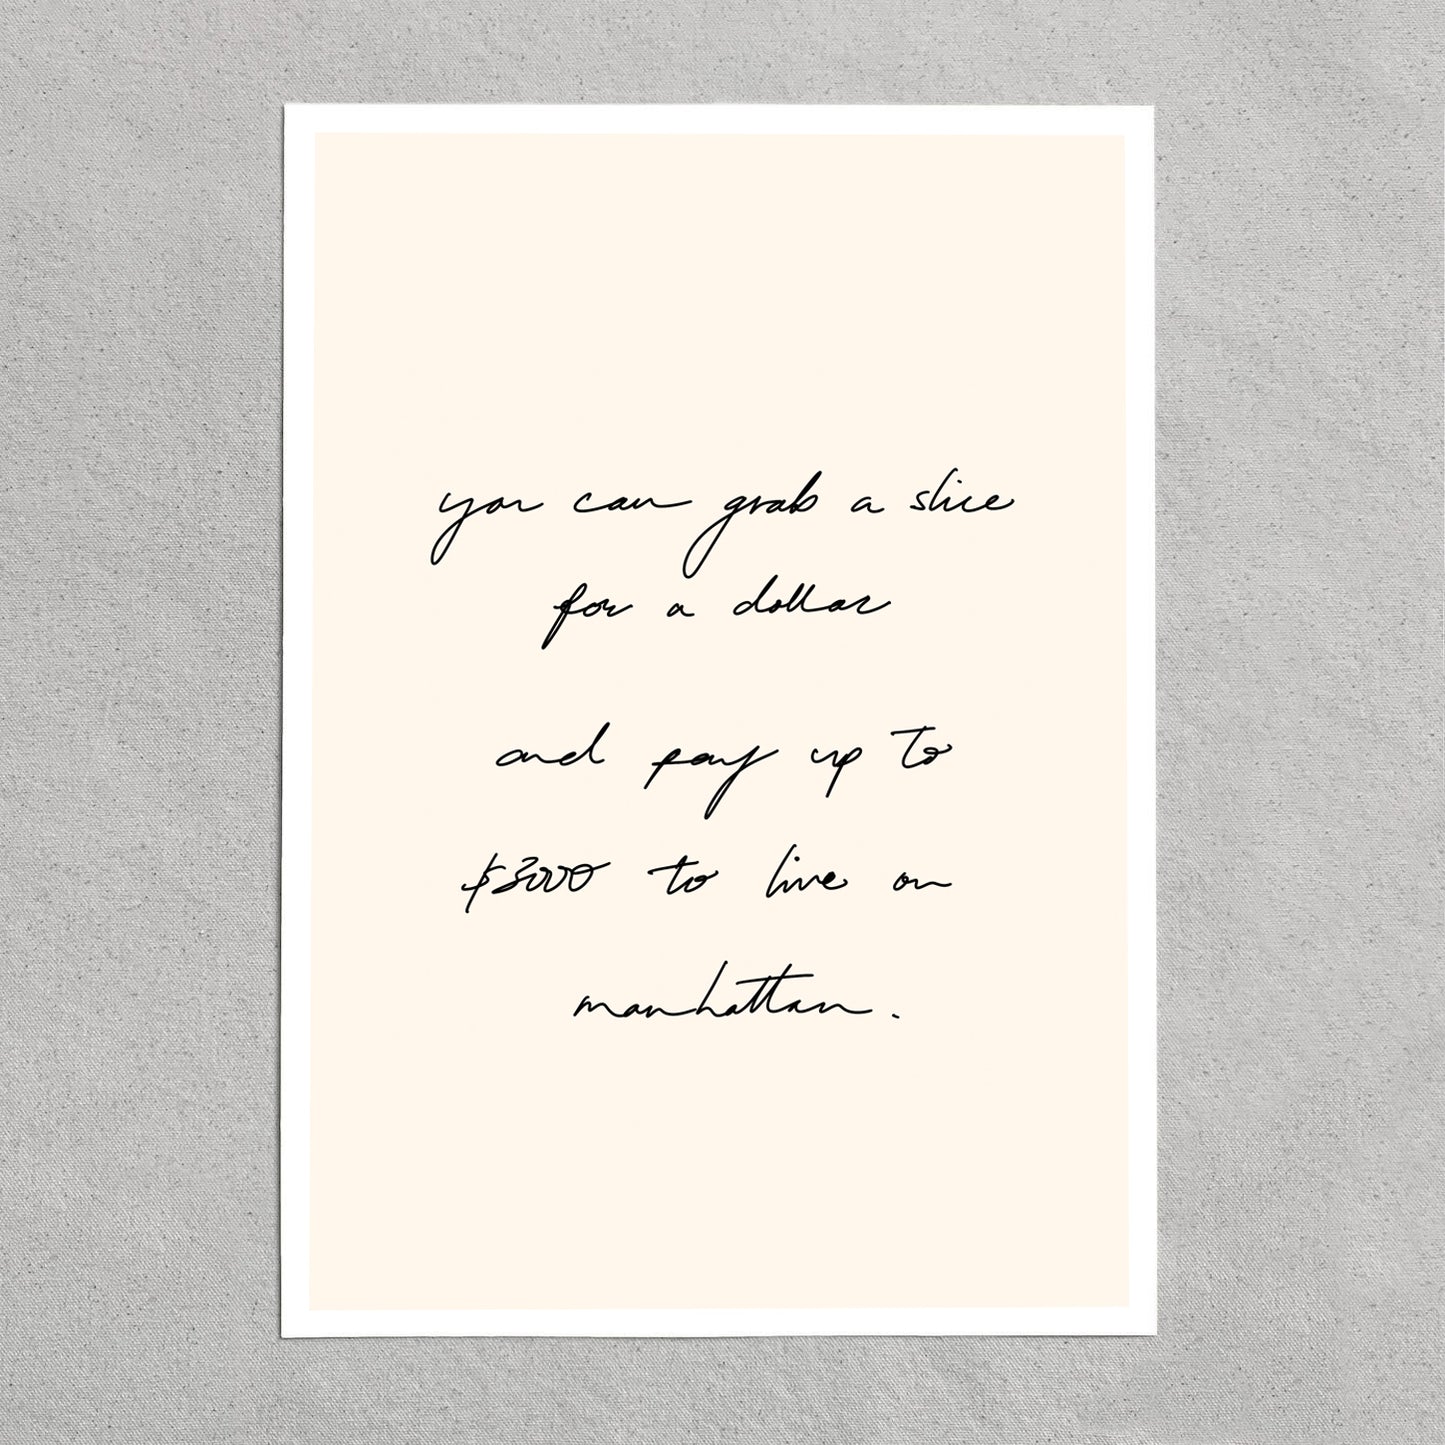 you can grab a slice
for a dollar
and pay up to
$3000 to live on
manhattan.